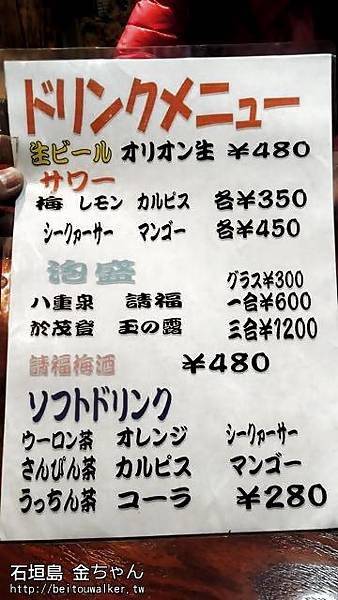 ドリンクメニュー
生ビール オリオン生 ¥480
サワー
梅 レモン カルピス 各¥350
シークァーサー マンゴー 各¥450
泡盛 グラス¥300
八重泉 請福 一合¥600
於茂登 玉の露 三合¥1200
請福梅酒 ¥480
ソフトドリンク
ウーロン茶 オレンジ シークァーサー
さんぴん茶 カルピス マンゴー
うっちん茶 コーラ ¥280
石垣島 金ちゃん
http://beitouwalker.tw